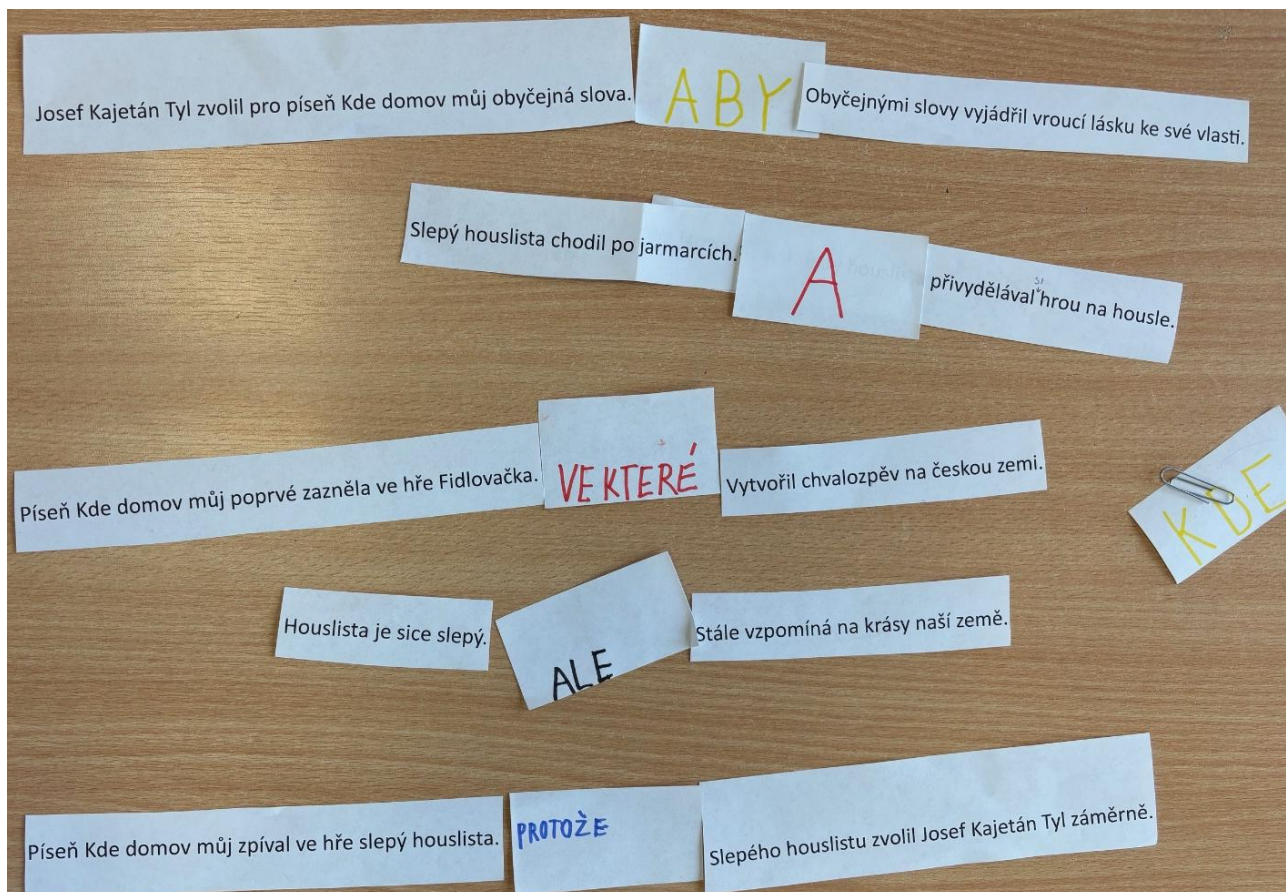 Josef Kajetán Tyl zvolil pro píseň Kde domov můj obyčejná slova. ABY Obyčejnými slovy vyjádřil vroucí lásku ke své vlasti.
Slepý houslista chodil po jarmarcích. A přivydělával si hrou na housle.
Píseň Kde domov můj poprvé zazněla ve hře Fidlovačka. VE KTERÉ Vytvořil chvalozpěv na českou zemi.
KDE
Houslista je sice slepý. ALE Stále vzpomíná na krásy naší země.
Píseň Kde domov můj zpíval ve hře slepý houslista. PROTOŽE Slepého houslistu zvolil Josef Kajetán Tyl záměrně.